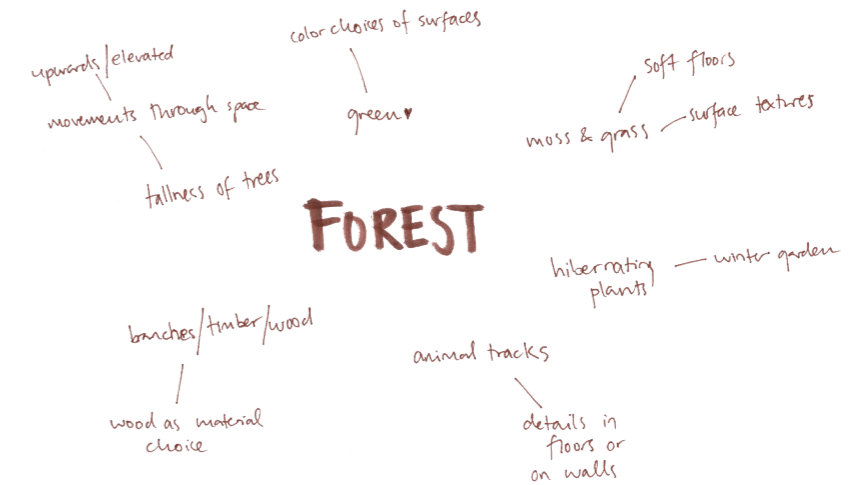 upwards/elevated
movements through space
tallness of trees
color choices of surfaces
green
soft floors
moss & grass
surface textures
FOREST
hibernating
plants
winter garden
branches/timber/wood
wood as material
choice
animal tracks
details in
floors or
on walls